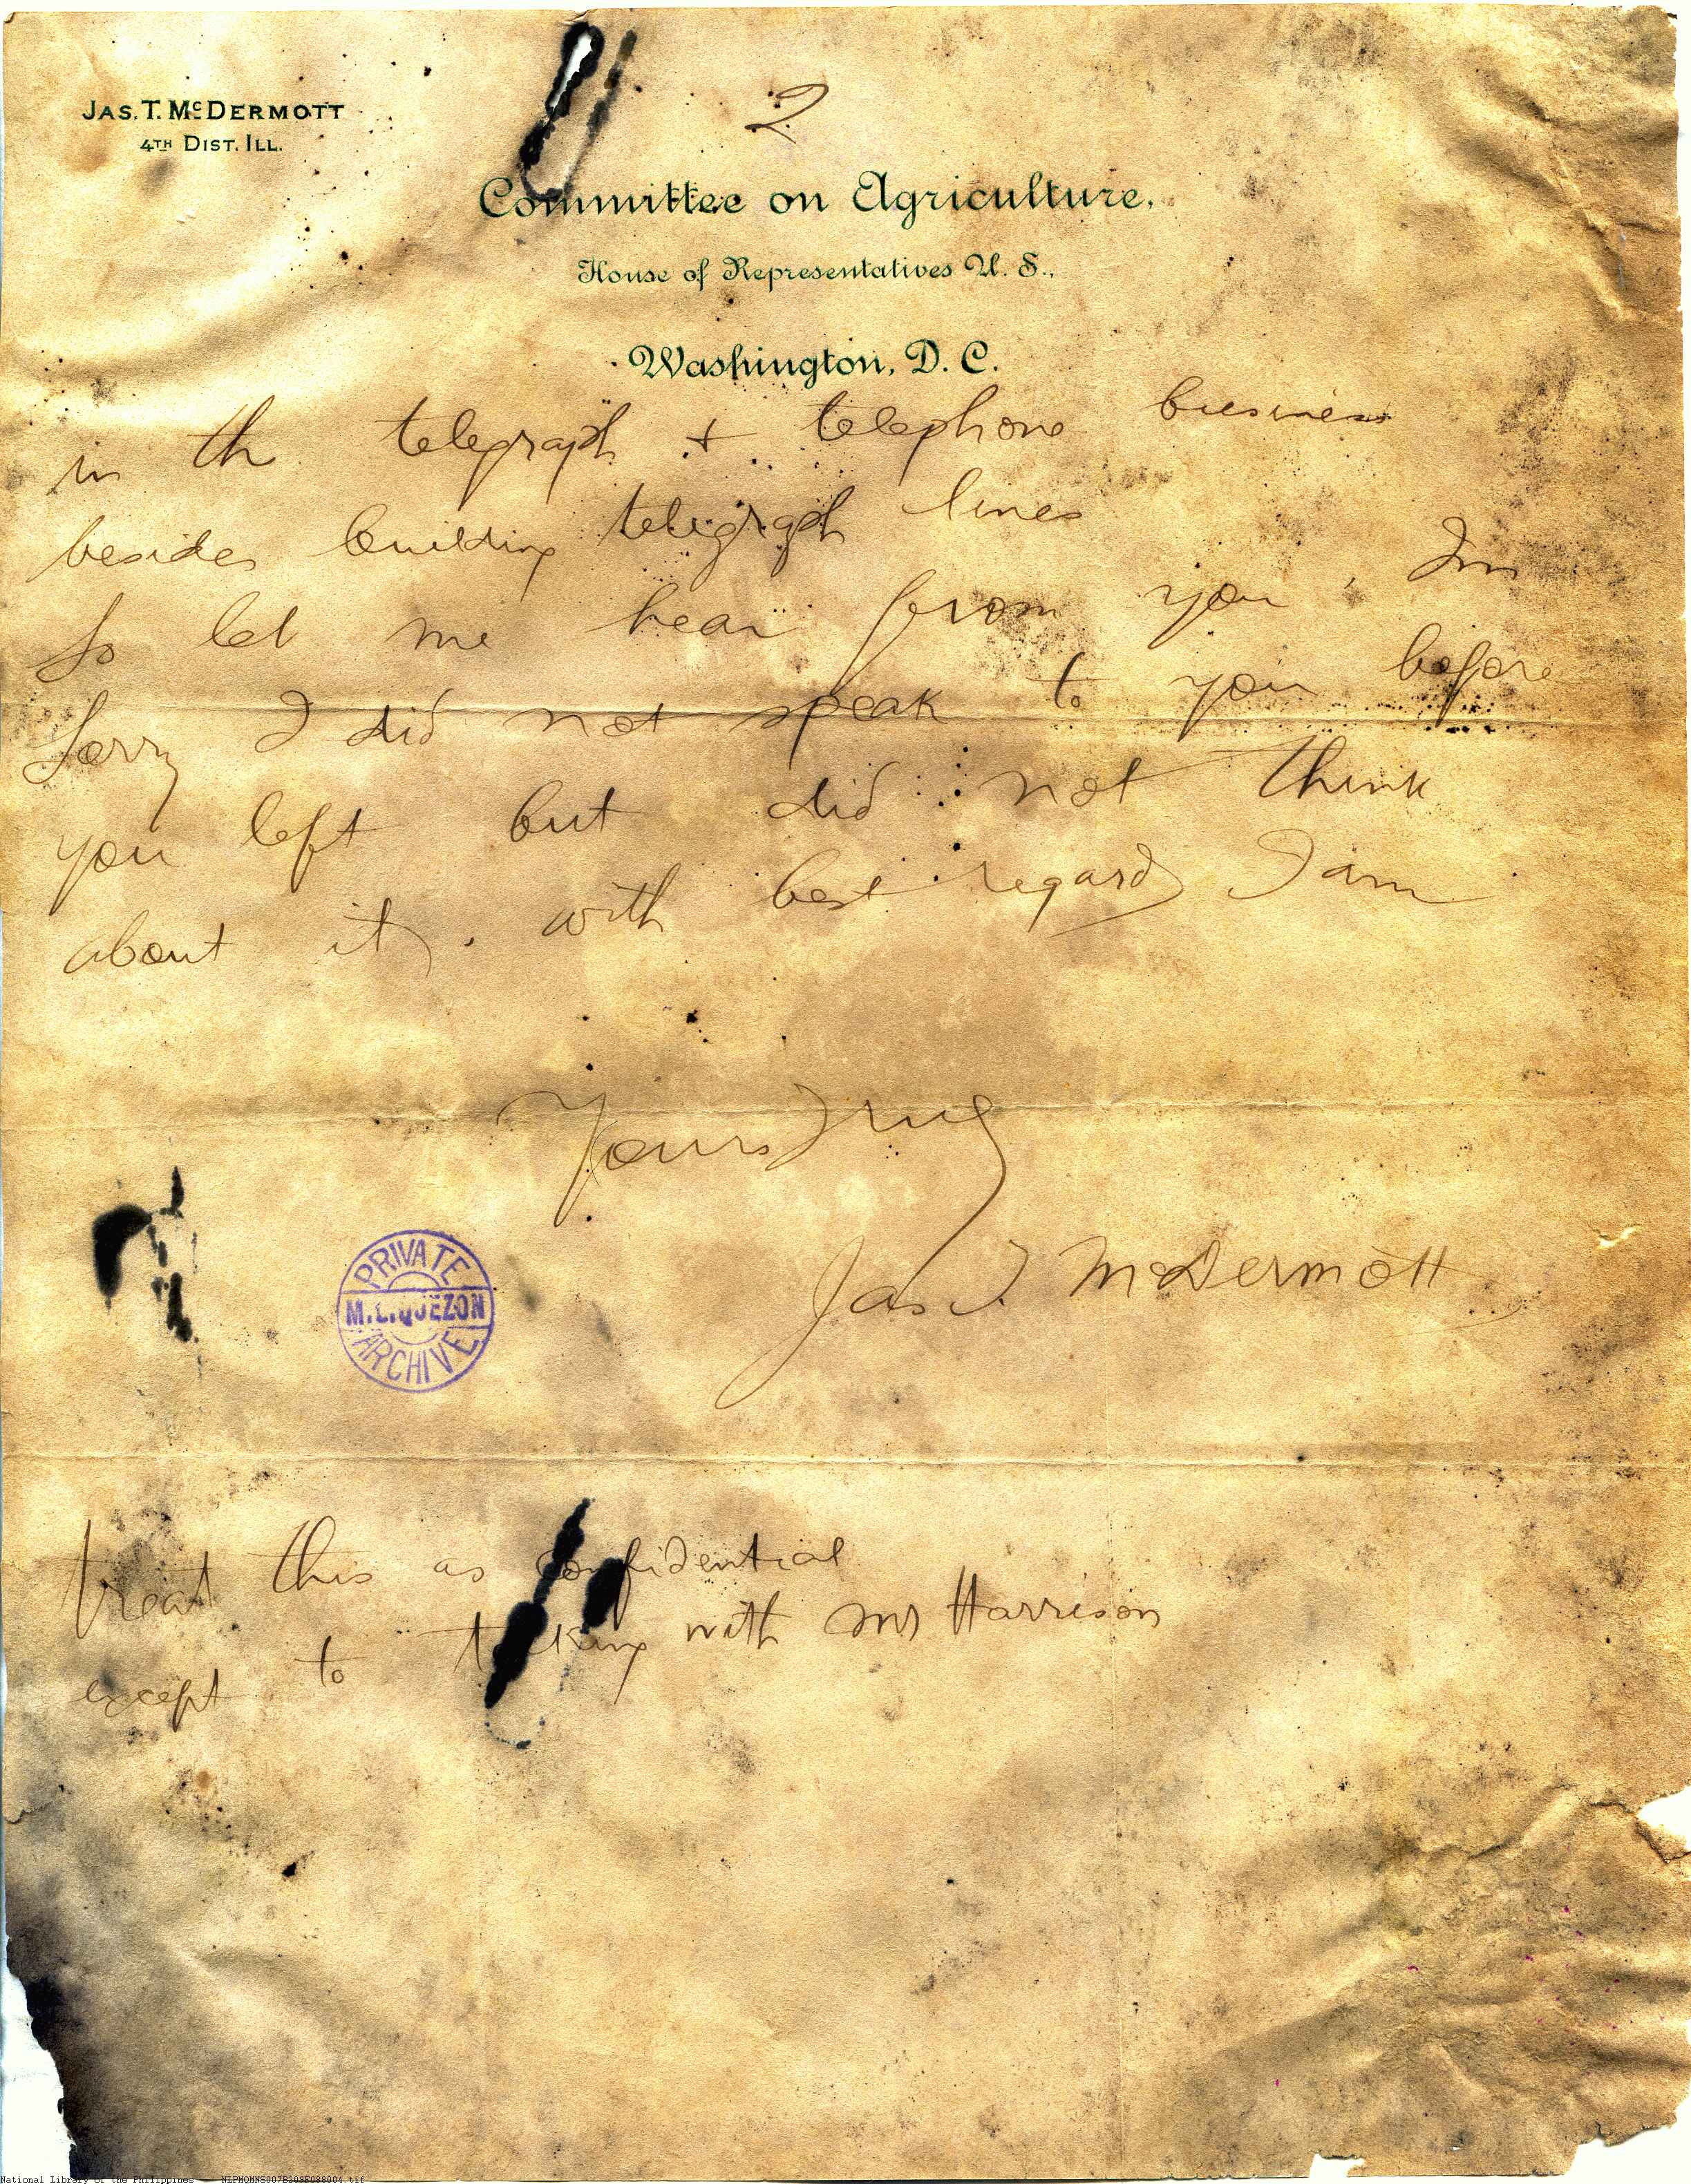 JAS. T. McDERMOTT
4TH DIST. ILL.
2
Committee on Agriculture,
House of Representatives U. S.,
Washington, D. C.
in th telegraph + telephone business
besides building telegraph lines
So let me hear from you. Im
Sorry I did not speak to you before
you left but did not think
about it. with best regards I am
Yours Truly
Jas T. McDermott
PRIVATE
M.L. QUEZON
ARCHIVE
treat this as confidential
except to talking with Mr Harrison
National Library of the Philippines